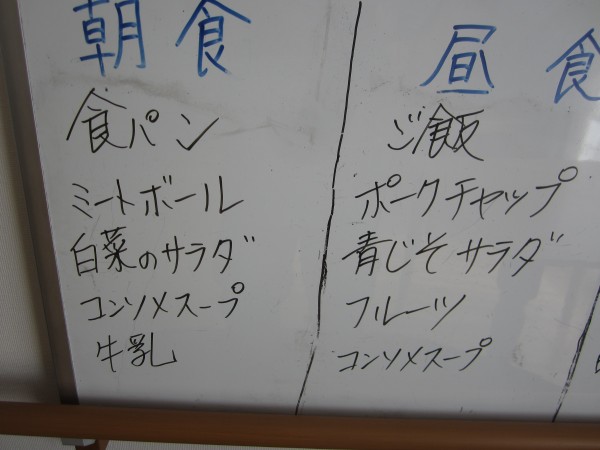 朝食
食パン
ミートボール
白菜のサラダ
コンソメスープ
牛乳
昼食
ご飯
ポークチャップ
青じそサラダ
フルーツ
コンソメスープ